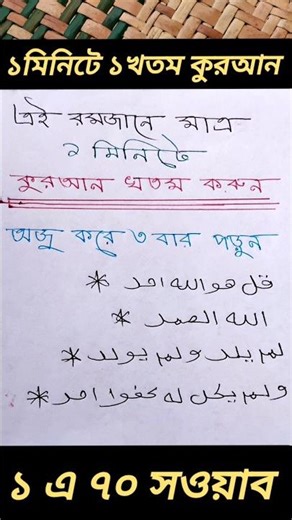 ১মিনিটে ১খতম কুরআন
এই রমজানে মাত্র
১ মিনিটে
কুরআন খতম করুন
অজু করে ৩ বার পড়ুন
قل هو الله احد *
الله الصمد *
لم يلد ولم يولد *
ولم يكن له كفوا احد *
১ এ ৭০ সওয়াব